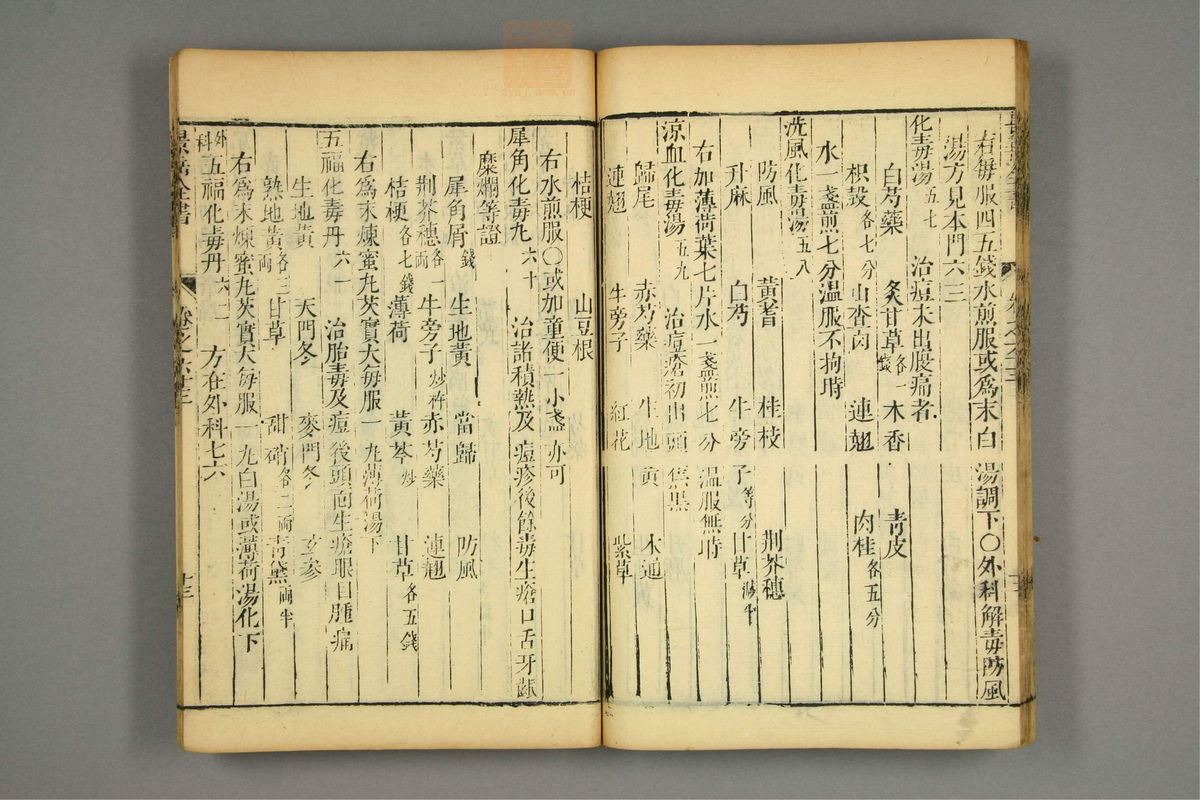 右每服四五錢水煎服或爲末白湯調下○外科解毒防風
湯方見本門六三
化毒湯五七 治痘未出腹痛者
白芍藥 炙甘草各一錢 木香 青皮
枳殼各七分 山查肉 連翹 肉桂各五分
水一盞煎七分溫服不拘時
洗風化毒湯五八
防風 黃耆 桂枝 荆芥穗
升麻 白芍 牛旁子等分 甘草減半
右加薄荷葉七片水一盞煎七分溫服無時
涼血化毒湯五九 治痘瘡初出頭焦黑
歸尾 赤芍藥 生地黃 木通
連翹 牛旁子 紅花 紫草
桔梗 山豆根
右水煎服○或加童便一小盞亦可
犀角化毒丸六十 治諸積熱及痘疹後餘毒生瘡口舌牙齦
糜爛等證
犀角屑錢 生地黃 當歸 防風
荆芥穗各一兩 牛旁子炒杵 赤芍藥 連翹
桔梗各七錢 薄荷 黃芩炒 甘草各五錢
右爲末煉蜜丸芡實大每服一丸薄荷湯下
五福化毒丹六一 治胎毒及痘後頭面生瘡眼目腫痛
生地黃 天門冬 麥門冬 玄參
熟地黃各三兩 甘草 甜硝各二兩 青黛兩半
右爲末煉蜜丸芡實大每服一丸白湯或薄荷湯化下
外科五福化毒丹六二 方在外科七六
景岳全書 卷之六十三 十三